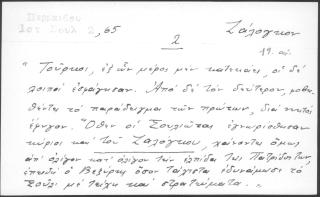 Περραιβού
Ιστ. Σουλ. 2, 65
Ζάλογκον
2
19. αι.
"Τούρκοι, ἐξ ὧν μέρος μὲν κατεκάη, οἱ δέ
λοιποί ἐσφάγησαν. Ἀπό δέ τόν δεύτερον, μαθ
θέντες τό παράδειγμα τῶν πρώτων, διά νυκτός
ἔφυγον. Ὅθεν οἱ Σουλιῶται ἐγνωρίσθησαν
κύριοι καί τοῦ Ζαλόγκου, χάνοντες ὅμως
ἀπ' ὀλίγον κατ' ὀλίγον τῶν ἐλπίδα τῆς Πατρίδος των,
ἐπειδή ὁ Βελζύρης ὅσον τάχιστα ἐδυνάμωσε τό
Σούλι μέ τείχη καί στρατεύματα."